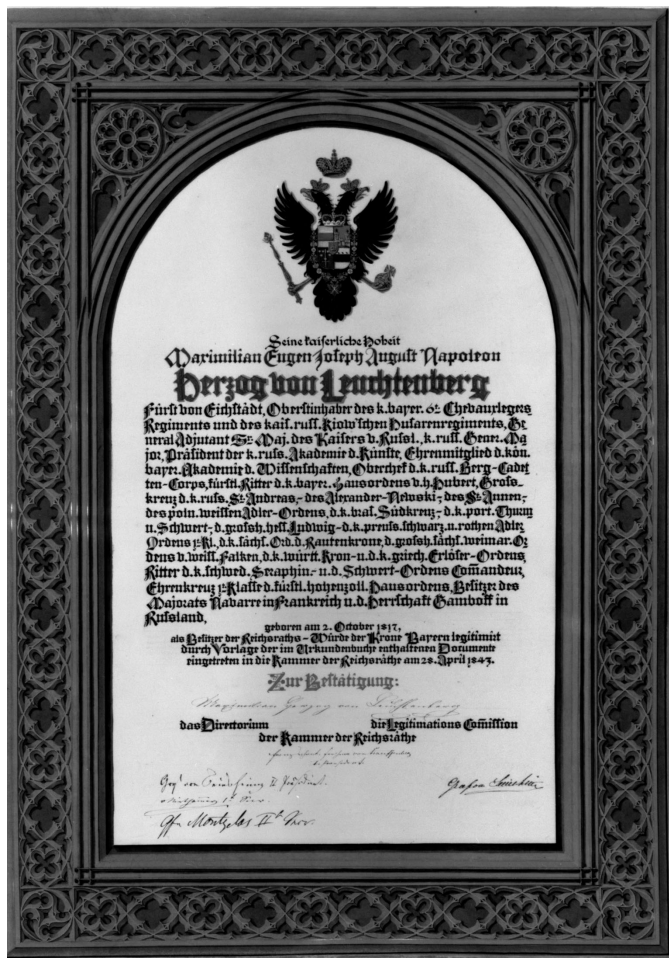 Seine kaiserliche Hoheit
Maximilian Eugen Joseph August Napoleon
Herzog von Leuchtenberg
Fürst von Eichstädt, Oberstinhaber des k. bayer. 6t. Chevauxlegers
Regiments und des kais. russ. Kiow'schen Husarenregiments, Ge
neral Adjutant Sr. Maj. des Kaisers v. Russl., k. russ. Gener. Ma
jor, Präsident der k. russ. Akademie d. Künste, Ehrenmitglied d. kön.
bayer. Akademie d. Wissenschaften, Oberchef d. k. russ. Berg-Cadet
ten-Corps, fürstl. Ritter d. k. bayer. Hausordens v. h. Hubert, Gross-
kreuz d. k. russ. St. Andreas,- des Alexander-Newski,- des St. Annen,-
des poln. weissen Adler-Ordens, d. k. bras. Südkreuz,- d. k. port. Thurm
u. Schwert,- d. grossh. hess. Ludwig,- d. k. preuss. schwarz. u. rothen Adler
Ordens 1r. Kl., d. k. sächs. Ord. d. Rautenkrone, d. grossh. sächs. weimar. Or
dens v. weiss. Falken, d. k. württ. Kron- u. d. k. griech. Erlöser-Ordens,
Ritter d. k. schwed. Seraphin- u. d. Schwert-Ordens Com̄andeur,
Ehrenkreuz 1r. Klasse d. fürstl. hohenzoll. Hausordens, Besitzer des
Majorats Navarre in Frankreich u. d. Herrschaft Gamboff in
Russland,
geboren am 2. October 1817,
als Besitzer der Reichsraths-Würde der Krone Bayern legitimirt
durch Vorlage der im Urkundenbuche enthaltenen Documente
eingetreten in die Kammer der Reichsräthe am 28. April 1843.
Zur Bestätigung:
Maximilian Herzog von Leuchtenberg
das Directorium die Legitimations Com̄ission
der Kammer der Reichsräthe
I. Präsident
Gf. von II. Präsident.
Grafen
Gf. Montgelas IIr. Secr.